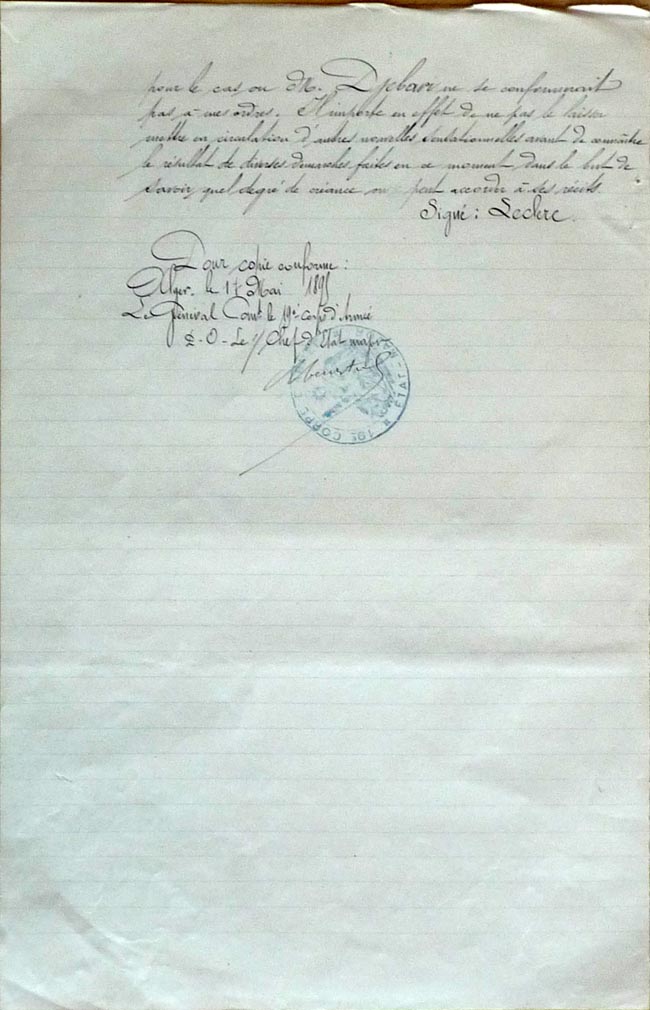 pour le cas ou M. Djebari ne se conformerait
pas à mes ordres. Il importe en effet de ne pas le laisser
mettre en circulation d'autres nouvelles sensationnelles avant de connaître
le résultat de diverses démarches faites en ce moment dans le but de
savoir quel degré de créance on peut accorder à ses récits.
Signé: Leclerc.
Pour copie conforme:
Alger, le 17 Mai 1895
Le Général Comt le 19e corps d'Armée
P. O. Le Chef d'Etat major
19E CORPS ETAT